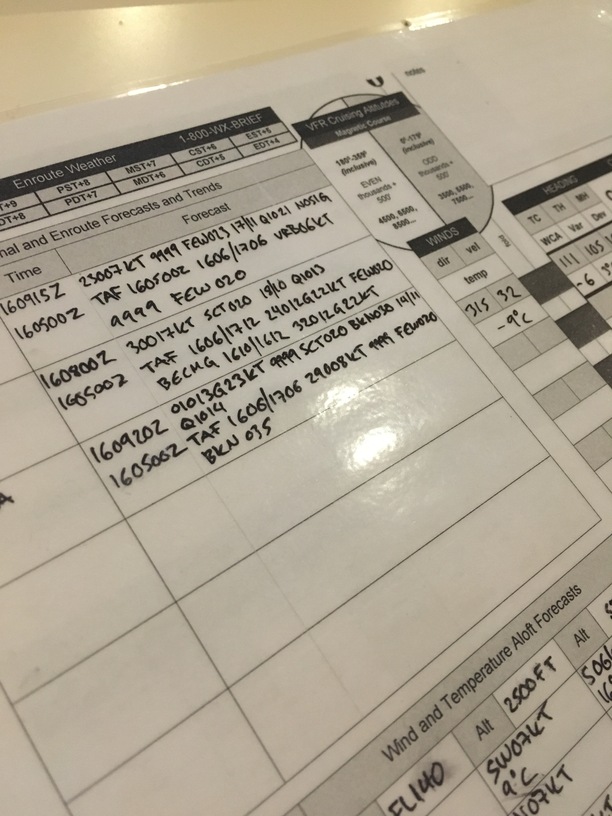 notes
Enroute Weather 1-800-WX-BRIEF
PST+8 MST+7 CST+6 EST+5
PDT+7 MDT+6 CDT+5 EDT+4
VFR Cruising Altitudes
Magnetic Course
180°-359° (inclusive) EVEN thousands + 500' 4500, 6500, 8500...
0°-179° (inclusive) ODD thousands + 500' 3500, 5500, 7500...
and Enroute Forecasts and Trends
Time Forecast
160915Z 23007KT 9999 FEW023 17/11 Q1021 NOSIG
160500Z TAF 160500Z 1606/1706 VRB06KT
9999 FEW 020
160800Z 30017KT SCT020 19/10 Q1013
160500Z TAF 1606/1712 24012G22KT FEW020
BECMG 1610/1612 32012G22KT
160920Z 01013G23KT 9999 SCT020 BKN030 19/11
Q1014
160500Z TAF 1606/1706 29008KT 9999 FEW020
BKN 035
WINDS
dir vel
temp
315 32
-9°C
HEADING
TC TH MH
WCA Var Dev
111 105
-6
Wind and Temperature Aloft Forecasts
Alt 2500FT Alt
FL140 SW07KT
9°C